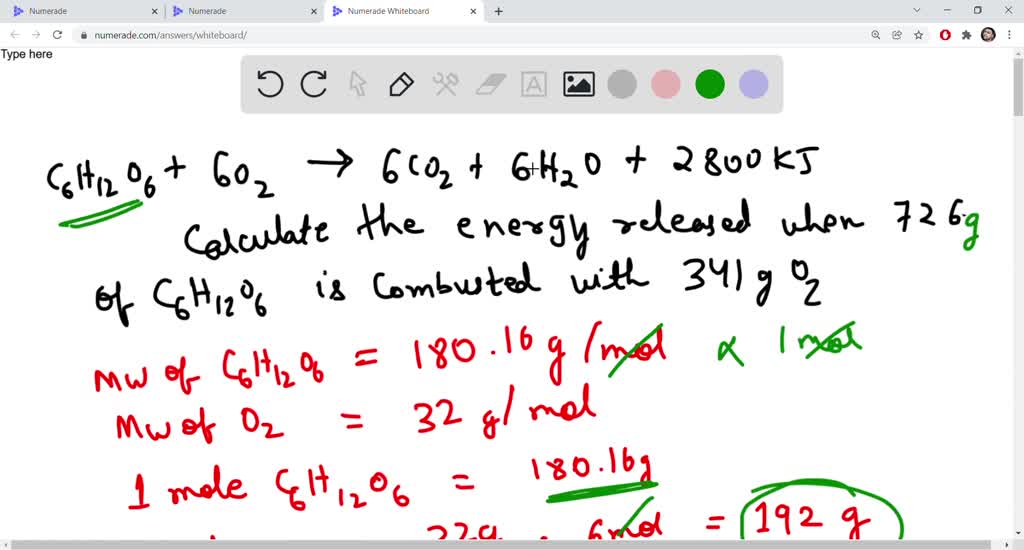 Numerade
Numerade
Numerade Whiteboard
numerade.com/answers/whiteboard/
Type here
A
C₆H₁₂O₆ + 6O₂ → 6CO₂ + 6H₂O + 2800 KJ
Calculate the energy released when 726g
of C₆H₁₂O₆ is combusted with 341 g O₂
MW of C₆H₁₂O₆ = 180.16 g/mol × 1 mol
MW of O₂ = 32 g/mol
1 mole C₆H₁₂O₆ = 180.16g
6mol = 192 g